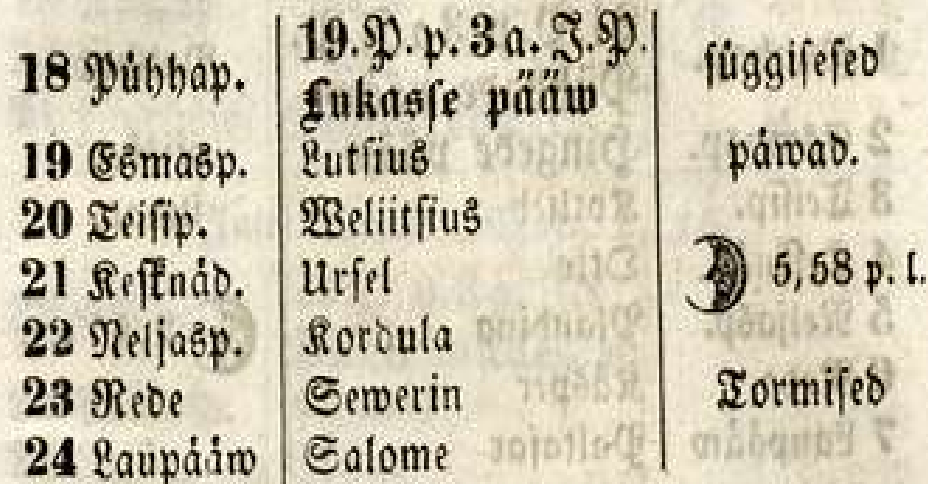 18 Pühhap. 19. P. p. 3 a. J. P. süggisesed
Lukasse pääw
19 Esmasp. Lutsius päwad.
20 Teisip. Weliitsius
21 Keſknäd. Ursel 5,58 p. l.
22 Neljasp. Kordula
23 Rede Sewerin Tormised
24 Laupääw Salome